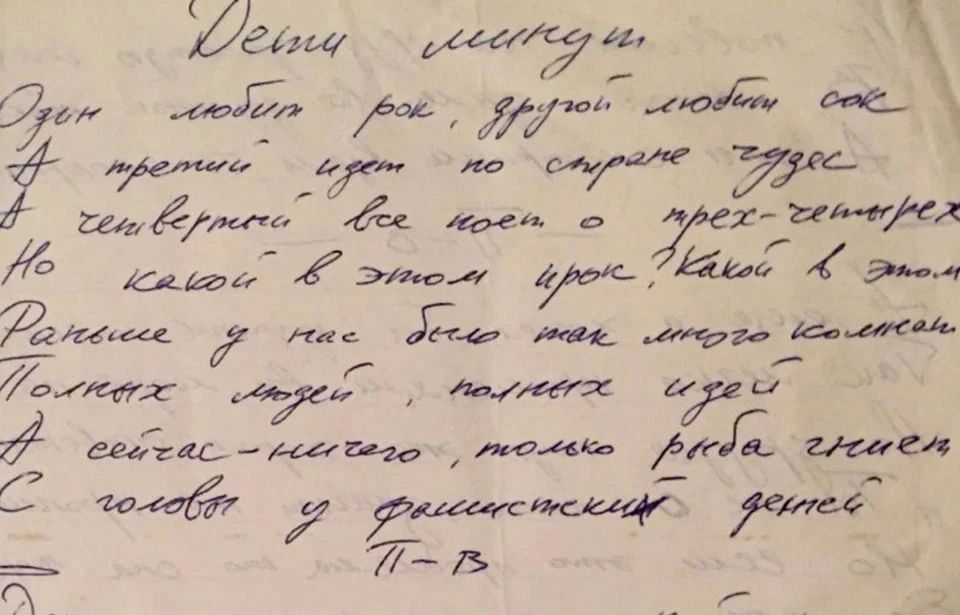 Дети минут
Один любит рок, другой любит сок
А третий идет по стране чудес
А четвертый все поет о трех-четырех
Но какой в этом прок? Какой в этом
Раньше у нас было так много комнат
Полных людей, полных идей
А сейчас - ничего, только рыба гниет
С головы у фашистских детей
П-В